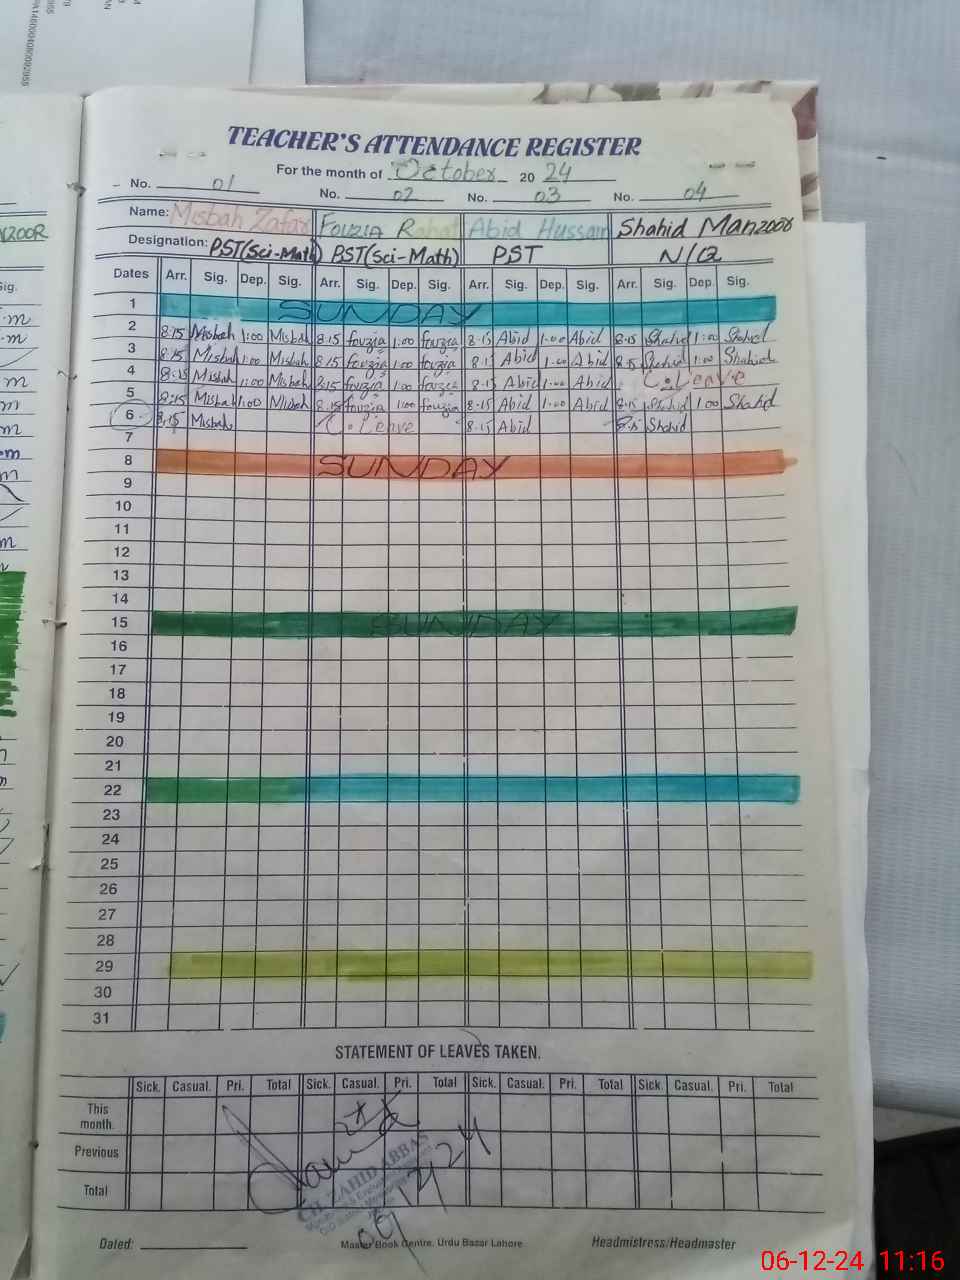 TEACHER'S ATTENDANCE REGISTER
For the month of October 20 24
No. 01 No. 02 No. 03 No. 04
Name: Misbah Zafar Fouzia Rahat Abid Hussain Shahid Manzoor
Designation: PST(Sci-Math) PST(Sci-Math) PST N/Q
Dates Arr. Sig. Dep. Sig. Arr. Sig. Dep. Sig. Arr. Sig. Dep. Sig. Arr. Sig. Dep. Sig.
1 SUNDAY
2 8:15 Misbah 1:00 Misbah 8:15 fouzia 1:00 fouzia 8:15 Abid 1:00 Abid 8:15 Shahid 1:00 Shahid
3 8:15 Misbah 1:00 Misbah 8:15 fouzia 1:00 fouzia 8:15 Abid 1:00 Abid 8:15 Shahid 1:00 Shahid
4 8:15 Misbah 1:00 Misbah 8:15 fouzia 1:00 fouzia 8:15 Abid 1:00 Abid C.Leave
5 8:15 Misbah 1:00 Misbah 8:15 fouzia 1:00 fouzia 8:15 Abid 1:00 Abid 8:15 Shahid 1:00 Shahid
6 8:15 Misbah C.Leave 8:15 Abid 8:15 Shahid
7
8 SUNDAY
9
10
11
12
13
14
15 SUNDAY
16
17
18
19
20
21
22
23
24
25
26
27
28
29
30
31
STATEMENT OF LEAVES TAKEN.
Sick. Casual. Pri. Total Sick. Casual. Pri. Total Sick. Casual. Pri. Total Sick. Casual. Pri. Total
This month.
Previous
Total
ZAHID ABBAS
Dated: Master Book Centre, Urdu Bazar Lahore Headmistress/Headmaster
06-12-24 11:16